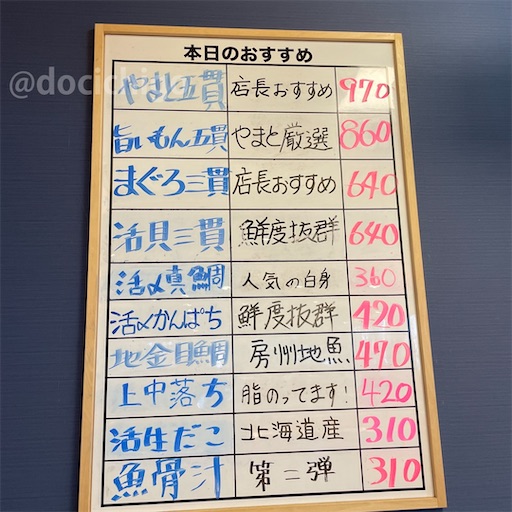 本日のおすすめ
やまと五貫 店長おすすめ 970
旨いもん五貫 やまと厳選 860
まぐろ三貫 店長おすすめ 640
活貝三貫 鮮度抜群 640
活〆真鯛 人気の白身 360
活〆かんぱち 鮮度抜群 420
地金目鯛 房州地魚 470
上中落ち 脂のってます! 420
活生だこ 北海道産 310
魚骨汁 第二弾 310